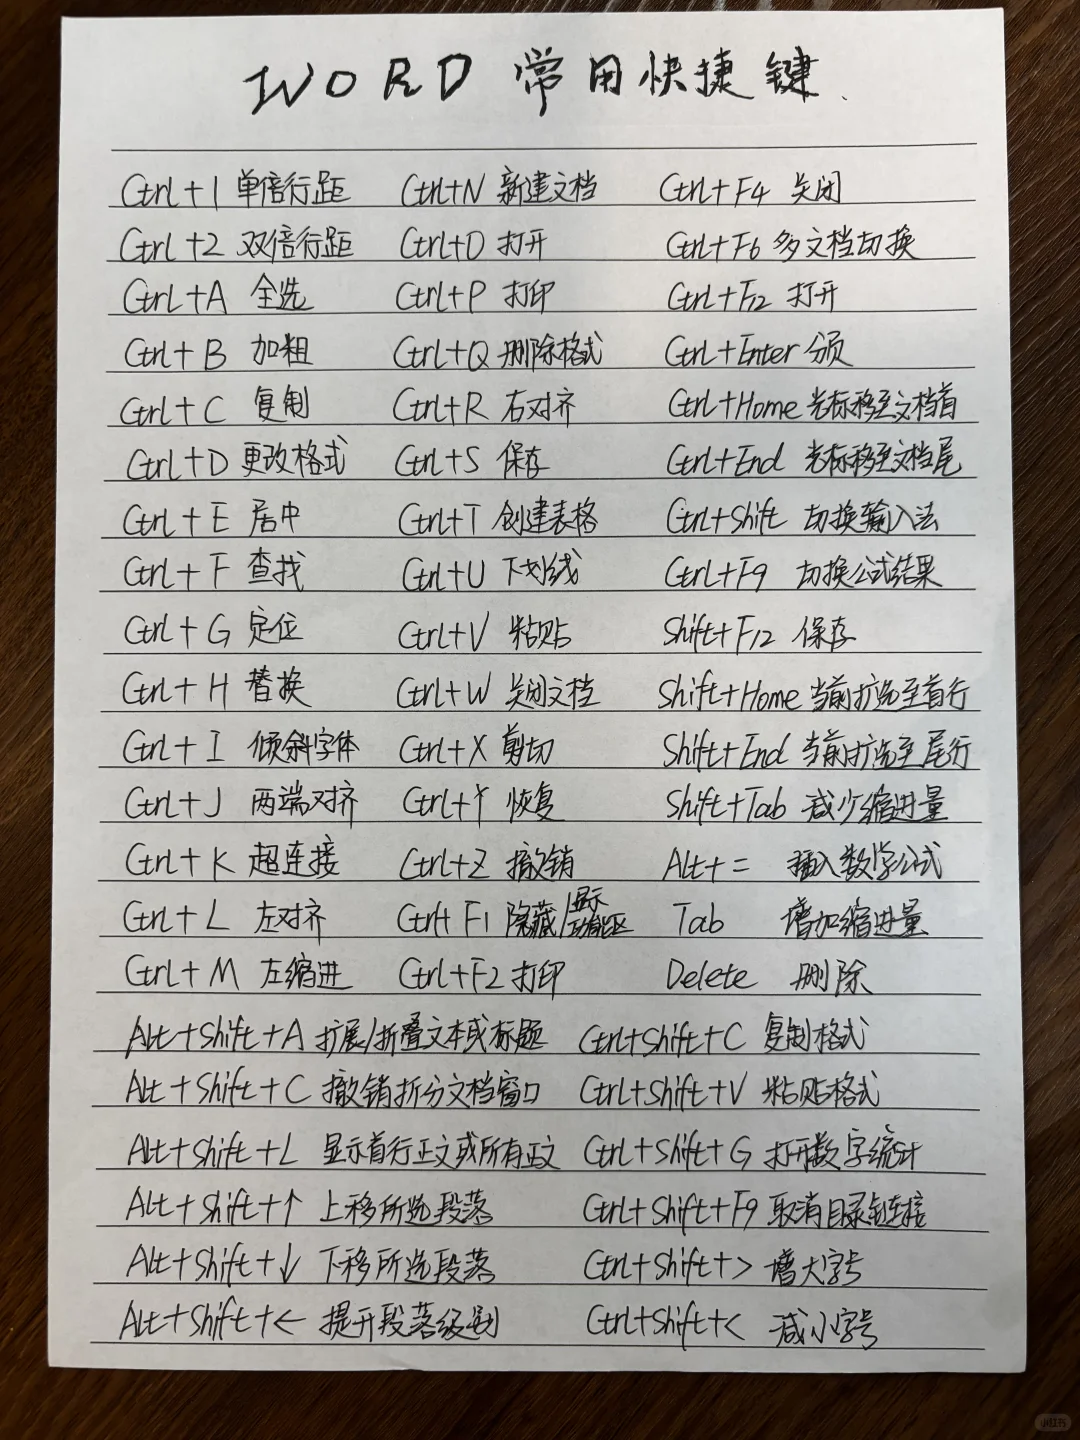 WORD 常用快捷键
Ctrl+1 单倍行距 Ctrl+N 新建文档 Ctrl+F4 关闭
Ctrl+2 双倍行距 Ctrl+O 打开 Ctrl+F6 多文档切换
Ctrl+A 全选 Ctrl+P 打印 Ctrl+F12 打开
Ctrl+B 加粗 Ctrl+Q 删除格式 Ctrl+Enter 分页
Ctrl+C 复制 Ctrl+R 右对齐 Ctrl+Home 光标移至文档首
Ctrl+D 更改格式 Ctrl+S 保存 Ctrl+End 光标移至文档尾
Ctrl+E 居中 Ctrl+T 创建表格 Ctrl+Shift 切换输入法
Ctrl+F 查找 Ctrl+U 下划线 Ctrl+F9 切换公式结果
Ctrl+G 定位 Ctrl+V 粘贴 Shift+F12 保存
Ctrl+H 替换 Ctrl+W 关闭文档 Shift+Home 当前扩选至首行
Ctrl+I 倾斜字体 Ctrl+X 剪切 Shift+End 当前扩选至尾行
Ctrl+J 两端对齐 Ctrl+Y 恢复 Shift+Tab 减少缩进量
Ctrl+K 超连接 Ctrl+Z 撤销 Alt+= 插入数学公式
Ctrl+L 左对齐 Ctrl+F1 隐藏/显示功能区 Tab 增加缩进量
Ctrl+M 左缩进 Ctrl+F2 打印 Delete 删除
Alt+Shift+A 扩展/折叠文本或标题 Ctrl+Shift+C 复制格式
Alt+Shift+C 撤销拆分文档窗口 Ctrl+Shift+V 粘贴格式
Alt+Shift+L 显示首行正文或所有正文 Ctrl+Shift+G 打开数字统计
Alt+Shift+↑ 上移所选段落 Ctrl+Shift+F9 取消目录链接
Alt+Shift+↓ 下移所选段落 Ctrl+Shift+> 增大字号
Alt+Shift+← 提升段落级别 Ctrl+Shift+< 减小字号
小红书